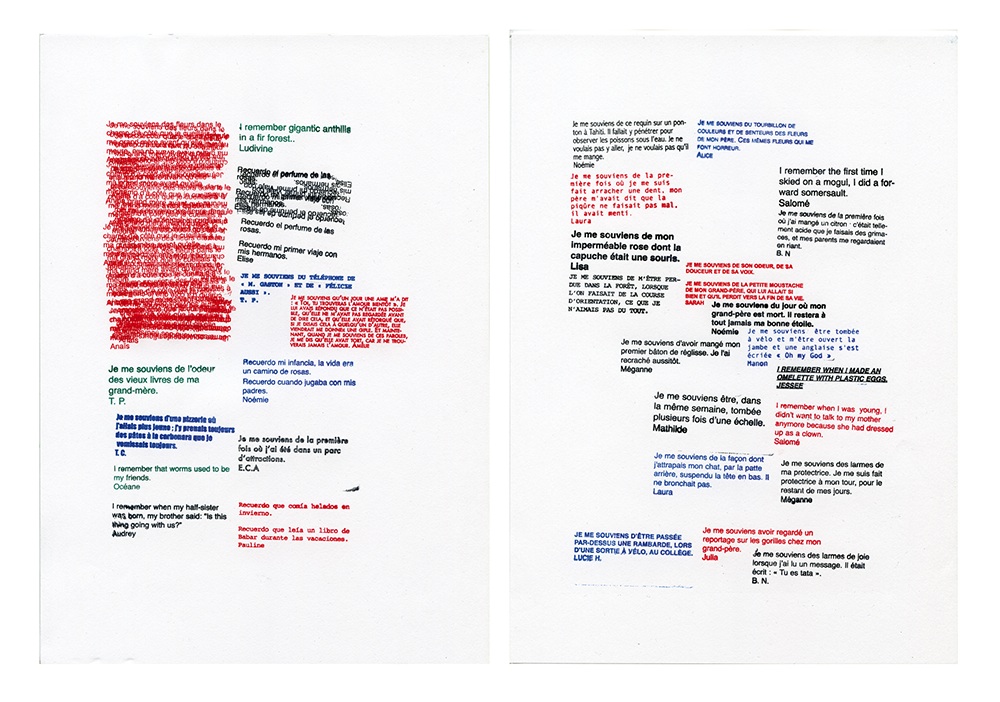 Je me souviens des fleurs dans le
champ d'à côté que je cueillais
Anaïs
Anaïs
Je me souviens de l'odeur
des vieux livres de ma
grand-mère.
T. P.
Je me souviens d'une pizzeria où
j'allais plus jeune ; j'y prenais toujours
des pâtes à la carbonara que je
vomissais toujours.
T. C.
I remember that worms used to be
my friends.
Océane
I remember when my half-sister
was born, my brother said: "Is this
thing going with us?"
Audrey
I remember gigantic anthills
in a fir forest..
Ludivine
Recuerdo el perfume de las
rosas.
Recuerdo el perfume de las
rosas.
Recuerdo mi primer viaje con
mis hermanos.
Elise
JE ME SOUVIENS DU TÉLÉPHONE DE
« M. GASTON » ET DE « FÉLICIE
AUSSI ».
T. P.
JE ME SOUVIENS QU'UN JOUR UNE AMIE M'A DIT
: « TOI, TU TROUVERAS L'AMOUR BIENTÔT ». JE
LUI AVAIS RÉPONDU QUE CE N'ÉTAIT PAS POSSI-
BLE, QU'ELLE NE M'AVAIT PAS REGARDÉE AVANT
DE DIRE CELA, ET QU'ELLE AVAIT RÉTORQUÉ QUE,
SI JE DISAIS CELA À QUELQU'UN D'AUTRE, ELLE
VIENDRAIT ME DONNER UNE GIFLE. ET MAINTE-
NANT, QUAND JE ME SOUVIENS DE CES PAROLES,
JE ME DIS QU'ELLE AVAIT TORT, CAR JE NE TROU-
VERAIS JAMAIS L'AMOUR. AMÉLIE
Recuerdo mi infancia, la vida era
un camino de rosas.
Recuerdo cuando jugaba con mis
padres.
Noémie
Je me souviens de la première
fois où j'ai été dans un parc
d'attractions.
E.C.A
Recuerdo que comía helados en
invierno.
Recuerdo que leía un libro de
Babar durante las vacaciones.
Pauline
Je me souviens de ce requin sur un pon-
ton à Tahiti. Il fallait y pénétrer pour
observer les poissons sous l'eau. Je ne
voulais pas y aller, je ne voulais pas qu'il
me mange.
Noémie
JE ME SOUVIENS DU TOURBILLON DE
COULEURS ET DE SENTEURS DES FLEURS
DE MON PÈRE. CES MÊMES FLEURS QUI ME
FONT HORREUR.
ALICE
Je me souviens de la pre-
mière fois où je me suis
fait arracher une dent, mon
père m'avait dit que la
piqûre ne faisait pas mal,
il avait menti.
Laura
I remember the first time I
skied on a mogul, I did a for-
ward somersault.
Salomé
Je me souviens de la première fois
où j'ai mangé un citron · c'était telle-
ment acide que je faisais des grima-
ces, et mes parents me regardaient
en riant.
B. N
Je me souviens de mon
imperméable rose dont la
capuche était une souris.
Lisa
JE ME SOUVIENS DE M'ÊTRE PER-
DUE DANS LA FORÊT, LORSQUE
L'ON FAISAIT DE LA COURSE
D'ORIENTATION, CE QUE JE
N'AIMAIS PAS DU TOUT.
JE ME SOUVIENS DE SON ODEUR, DE SA
DOUCEUR ET DE SA VOIX.
JE ME SOUVIENS DE LA PETITE MOUSTACHE
DE MON GRAND-PÈRE, QUI LUI ALLAIT SI
BIEN ET QU'IL PERDIT VERS LA FIN DE SA VIE.
SARAH
Je me souviens du jour où mon
grand-père est mort. Il restera à
tout jamais ma bonne étoile.
Noémie
Je me souviens être tombée
à vélo et m'être ouvert la
jambe et une anglaise s'est
écriée « Oh my God »
Manon
Je me souviens d'avoir mangé mon
premier bâton de réglisse. Je l'ai
recraché aussitôt.
Méganne
I REMEMBER WHEN I MADE AN
OMELETTE WITH PLASTIC EGGS.
JESSEE
Je me souviens être, dans
la même semaine, tombée
plusieurs fois d'une échelle.
Mathilde
I remember when I was young, I
didn't want to talk to my mother
anymore because she had dressed
up as a clown.
Salomé
Je me souviens de la façon dont
j'attrapais mon chat, par la patte
arrière, suspendu la tête en bas. Il
ne bronchait pas.
Laura
Je me souviens des larmes de
ma protectrice. Je me suis fait
protectrice à mon tour, pour le
restant de mes jours.
Méganne
JE ME SOUVIENS D'ÊTRE PASSÉE
PAR-DESSUS UNE RAMBARDE, LORS
D'UNE SORTIE À VÉLO, AU COLLÈGE.
LUCIE H.
Je me souviens avoir regardé un
reportage sur les gorilles chez mon
grand-père.
Julia
Je me souviens des larmes de joie
lorsque j'ai lu un message. Il était
écrit : « Tu es tata ».
B. N.